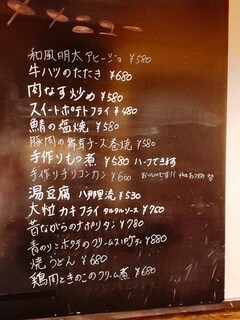 和風明太アヒージョ ¥580
牛ハツのたたき ¥680
肉なす炒め ¥580
スイートポテトフライ ¥480
鯖の塩焼 ¥580
豚肉の舞茸チーズ巻焼 ¥580
手作りもつ煮 ¥580 ハーフできます
手作り ¥600 おいしいです!!
湯豆腐 八郎潟流 ¥530
大粒カキフライ タルタルソース ¥760
昔ながらのナポリタン ¥780
青のりとホタテのクリームスパゲティ ¥880
焼うどん ¥680
鶏肉ときのこのクリーム煮 ¥680